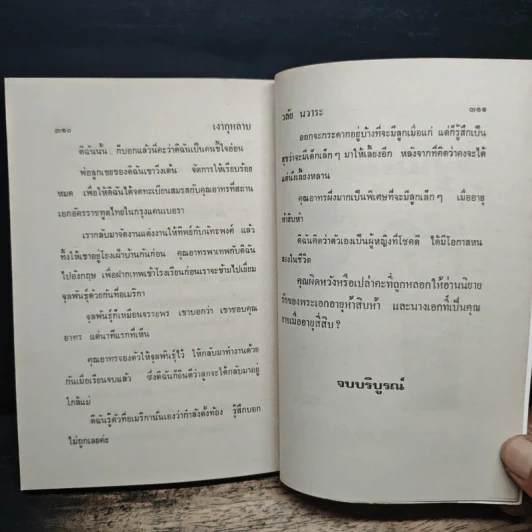 ๓๑๐ เงากุหลาบ
ดิฉันนั้น ก็บอกแล้วนี่คะว่าดิฉันเป็นคนขี้ใจอ่อน
พ่อลูกเขยของดิฉันเขาวิ่งเต้น จัดการให้เรียบร้อย
หมด เพื่อให้ดิฉันได้จดทะเบียนสมรสกับคุณอาทรที่สถาน
เอกอัครราชทูตไทยในกรุงแคนเบอรา
เรากลับมาจัดงานแต่งงานให้ทิพย์กับนัทธพงศ์ แล้ว
ทิ้งให้เขาอยู่โรงเฝ้าบ้านกันก่อน คุณอาทรพาเทพกับดิฉัน
ไปอังกฤษ เพื่อฝากเทพเข้าโรงเรียนก่อนเราจะข้ามไปเยี่ยม
จุลพันธุ์ด้วยกันที่อเมริกา
จุลพันธุ์ก็เหมือนจรวยพร เขาบอกว่า เขาชอบคุณ
อาทร แต่นาทีแรกที่เห็น
คุณอาทรจองตัวให้จุลพันธุ์ไว้ ให้กลับมาทำงานด้วย
กันเมื่อเรียนจบแล้ว ซึ่งดิฉันก็ยินดีว่าลูกจะได้กลับมาอยู่
ใกล้แม่
ดิฉันรู้ตัวที่อเมริกานั่นเองว่ากำลังตั้งท้อง รู้สึกบอก
ไม่ถูกเลยค่ะ
วลัย นวาระ ๓๑๑
ออกจะกระดากอยู่บ้างที่จะมีลูกเมื่อแก่ แต่ก็รู้สึกเป็น
สุขว่าจะมีเด็กเล็ก ๆ มาให้เลี้ยงอีก หลังจากที่คิดว่าคงจะได้
แต่นั่งเลี้ยงหลาน
คุณอาทรปลื้มมากเป็นพิเศษที่จะมีลูกเล็ก ๆ เมื่ออายุ
ห้าสิบห้า
ดิฉันคิดว่าตัวเองเป็นผู้หญิงที่โชคดี ได้มีโอกาสหน
สองในชีวิต
คุณผิดหวังหรือเปล่าคะที่ถูกหลอกให้อ่านนิยาย
รักของพระเอกอายุห้าสิบห้า และนางเอกที่เป็นคุณ
ยายเมื่ออายุสี่สิบ ?
จบบริบูรณ์